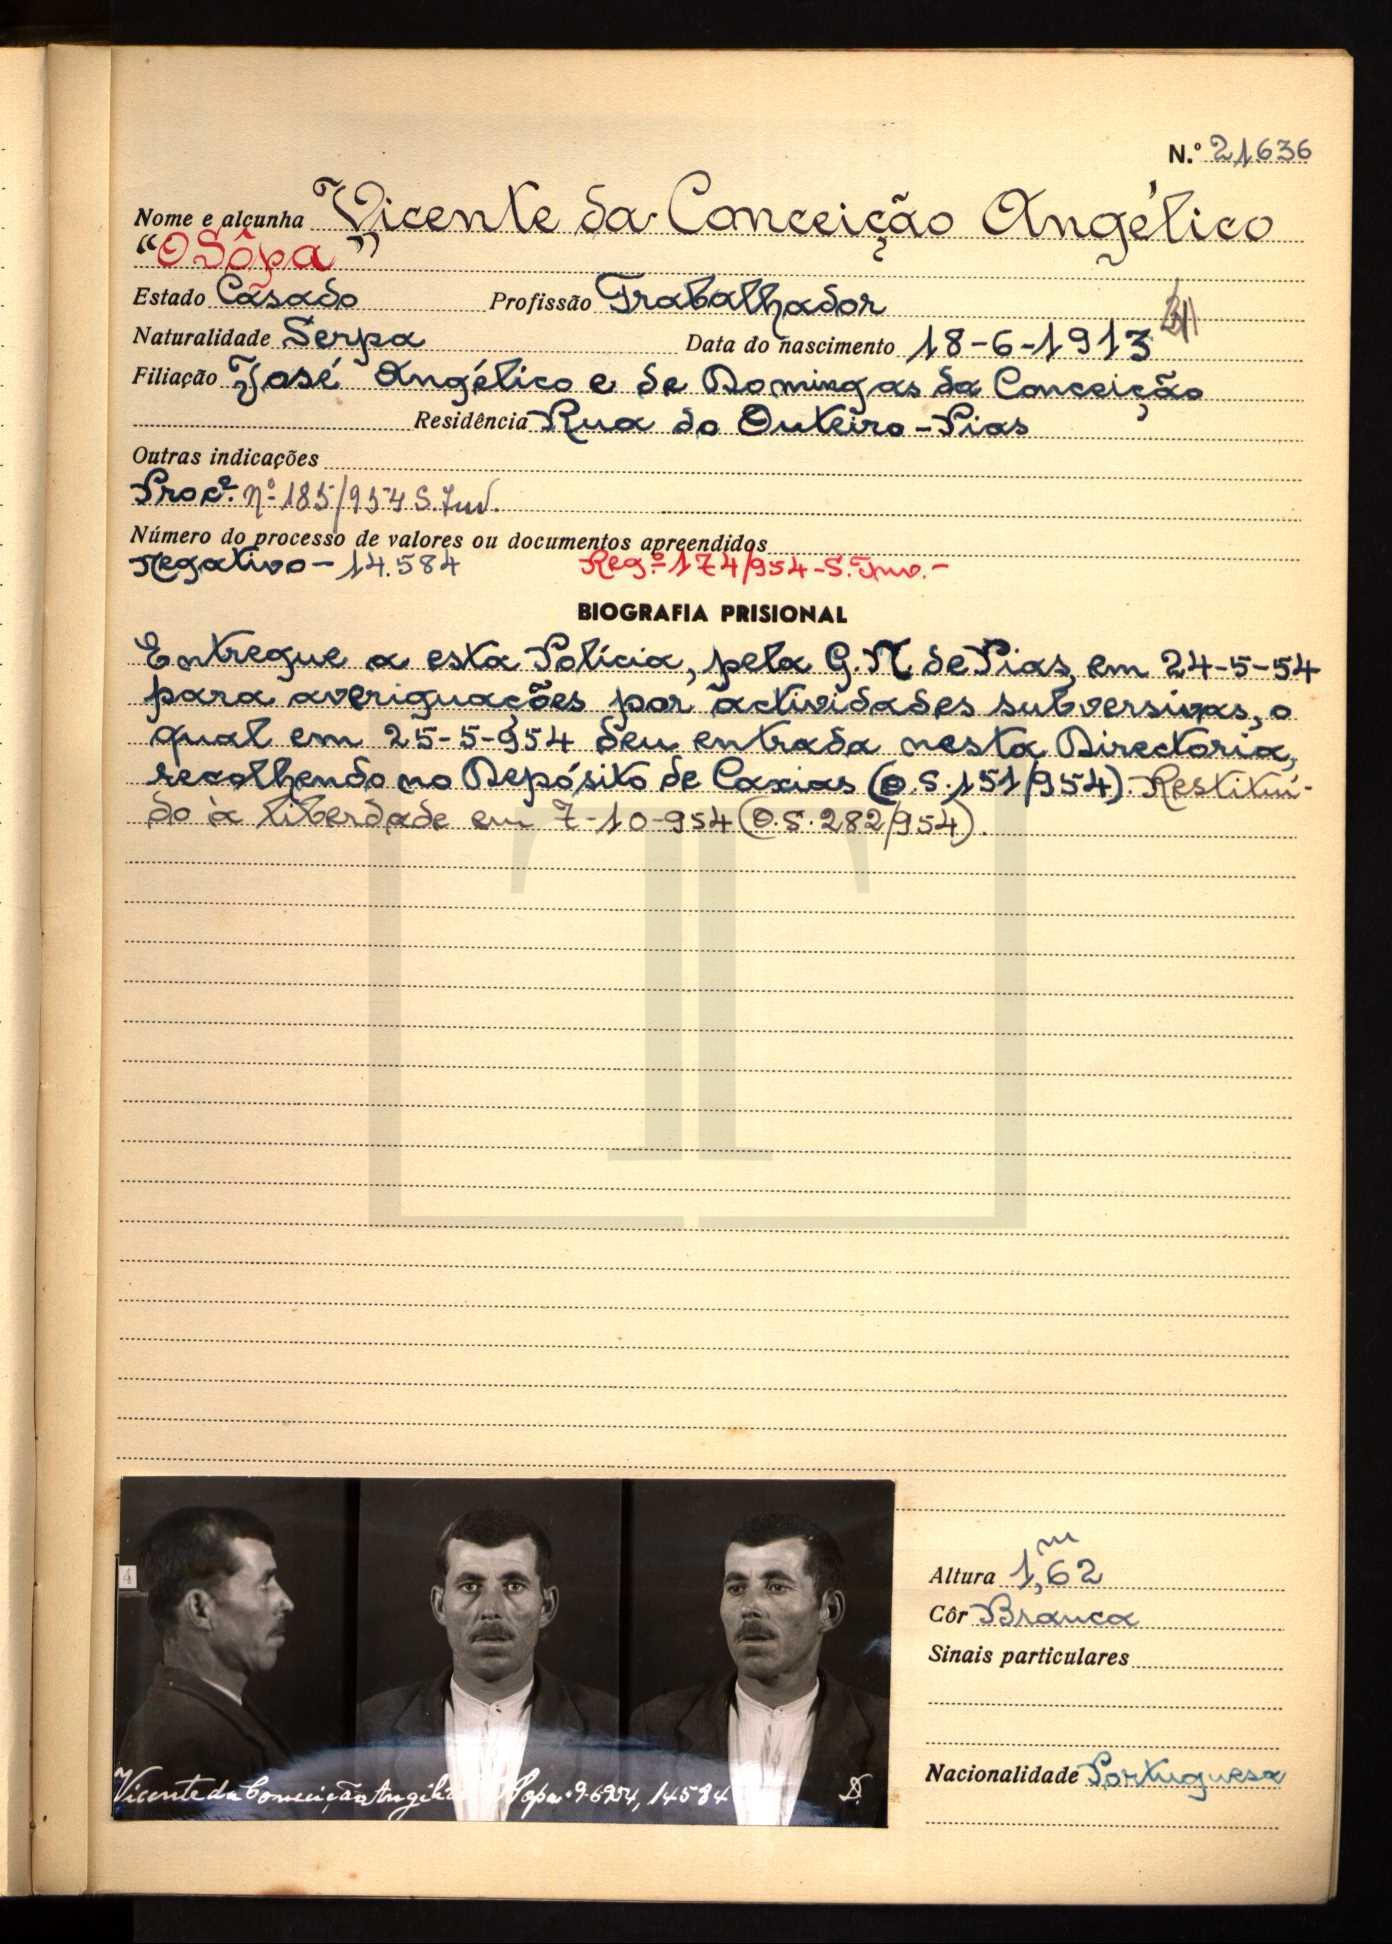 N.º 21636
Nome e alcunha Vicente da Conceição Angélico
"O Sôpa"
Estado Casado Profissão Trabalhador
Naturalidade Serpa Data do nascimento 18-6-1913
Filiação José Angélico e de Domingas da Conceição
Residência Rua do Outeiro-Pias
Outras indicações
Procº. nº 185/954 S.Inv.
Número do processo de valores ou documentos apreendidos
Negativo-14.584 Regº-174/954-S.Inv.-
BIOGRAFIA PRISIONAL
Entregue a esta Polícia, pela G.N. de Pias, em 24-5-54
para averiguações por actividades subversivas, o
qual em 25-5-954 deu entrada nesta Directoria,
recolhendo no Depósito de Caxias (O.S.151/954). Restituí-
do à liberdade em 7-10-954 (O.S.282/954).
4
Altura 1,62 m
Côr Branca
Sinais particulares
Nacionalidade Portuguesa
Vicente da Conceição Angélico Sopa 9-6-954, 14584 D.